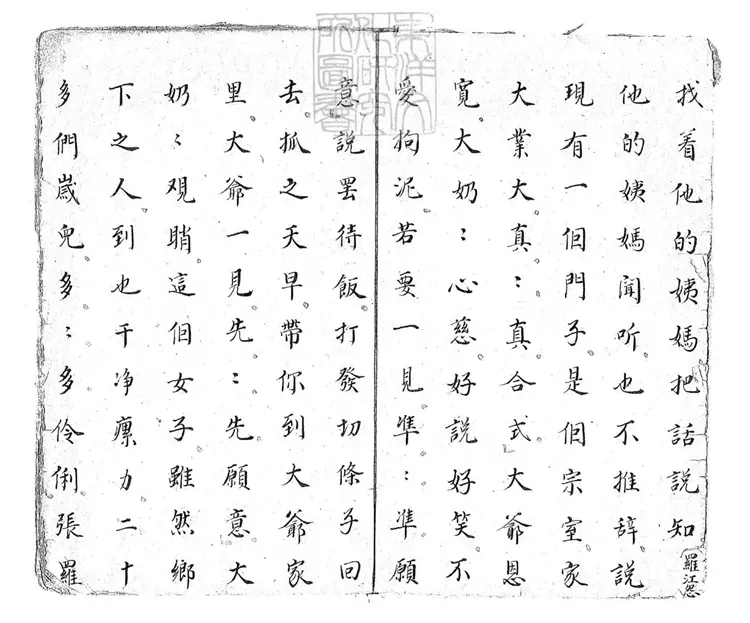 找着他的姨媽把話説知
羅江怨
他的姨媽闻听也不推辞説
現有一個門子是個宗室家
大業大真〻真合式大爺恩
寬大奶〻心慈好説好笑不
愛拘泥若要一見準〻準願
意説罢待飯打發切條子回
去抓之天早帶你到大爺家
里大爺一見先〻先願意大
奶〻观睄這個女子雖然鄉
下之人到也干净癝力二十
多們歳兒多〻多伶俐張羅